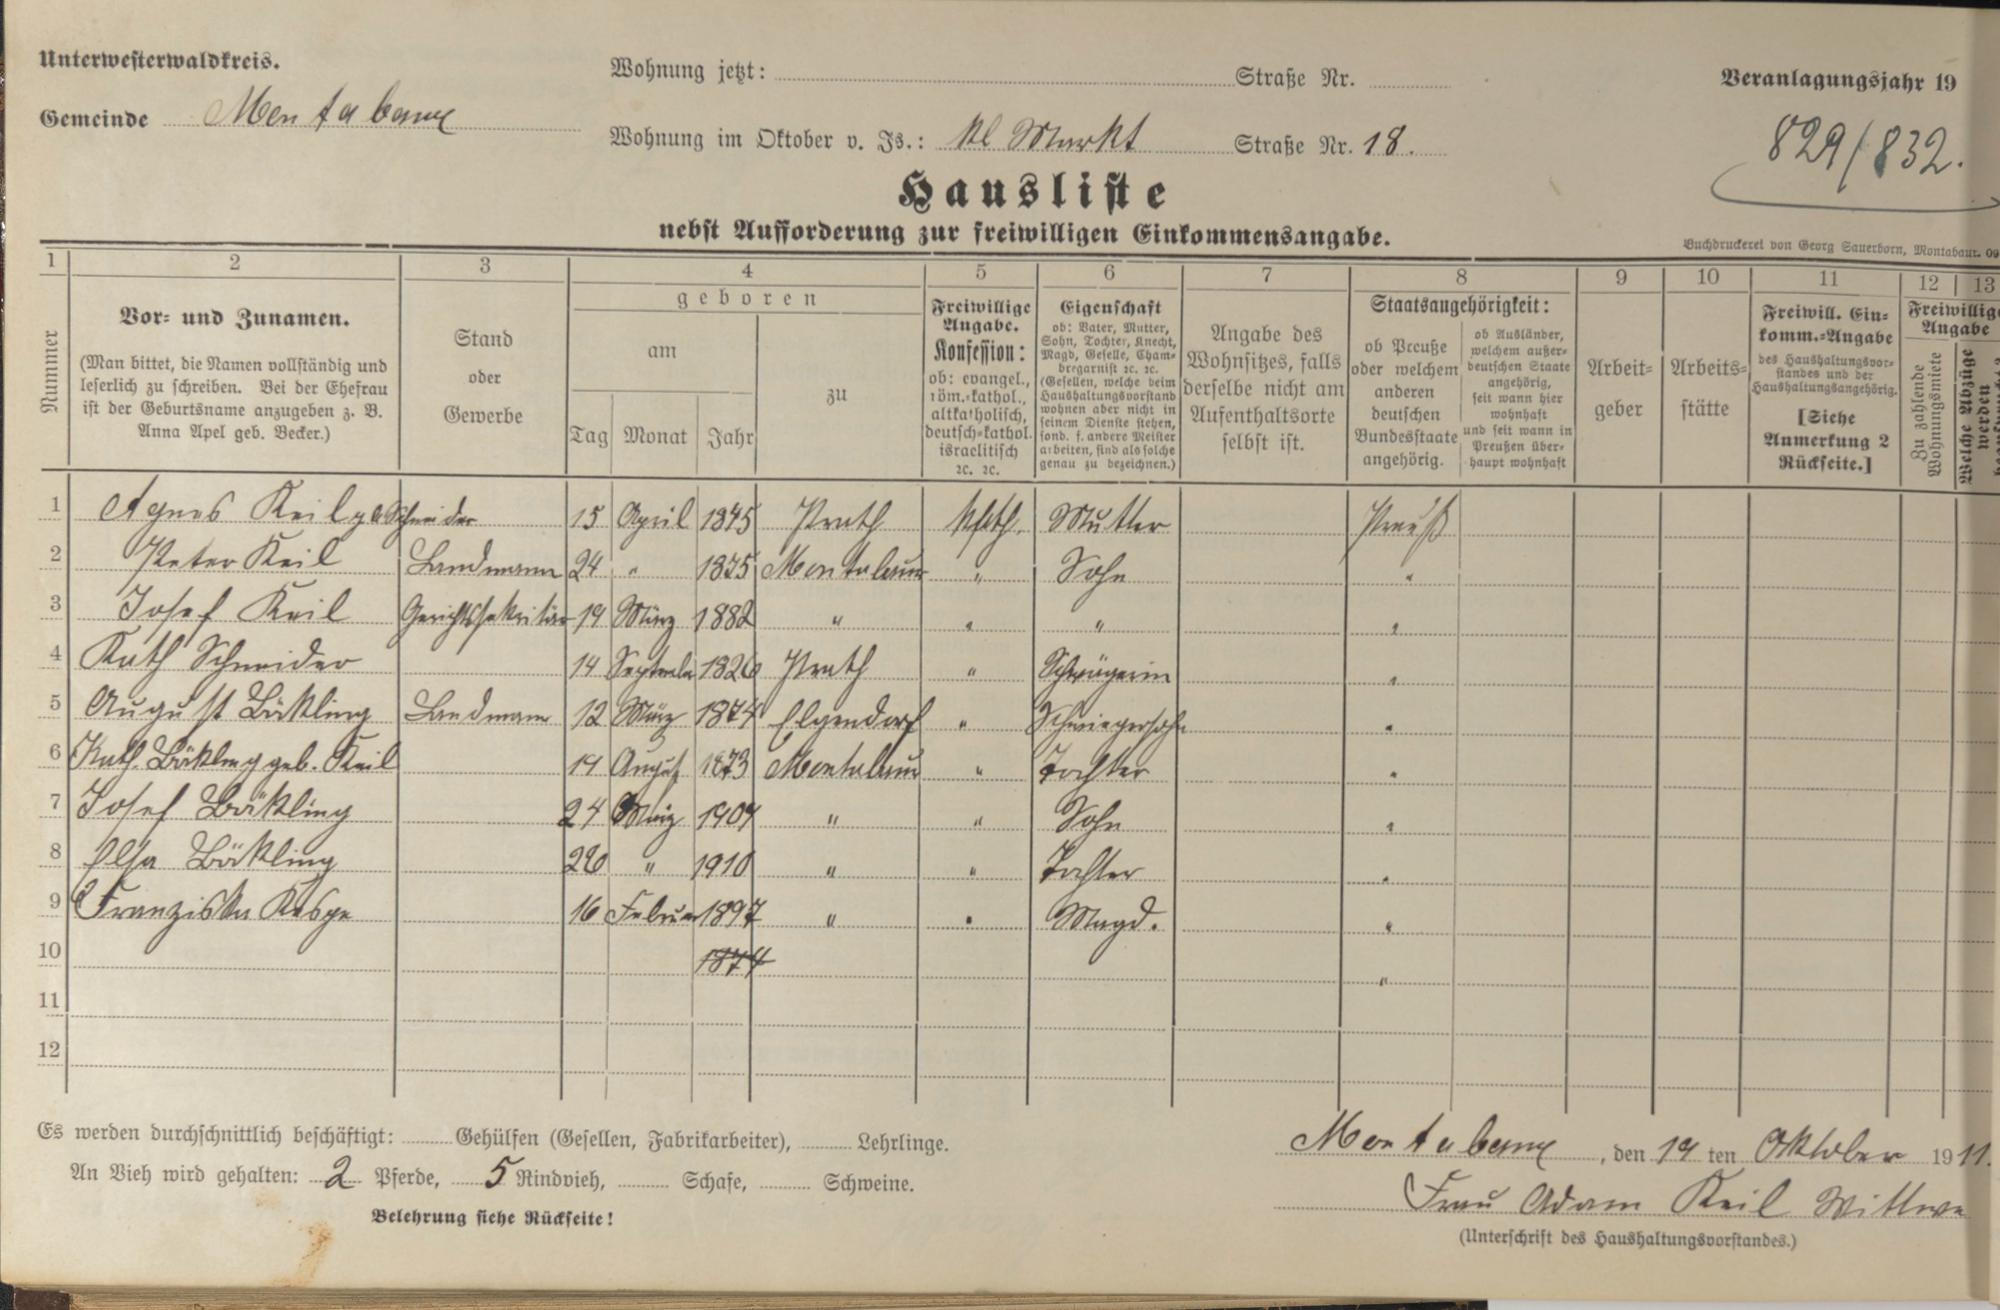 Unterwesterwaldkreis.
Wohnung jetzt: Straße Nr.
Veranlagungsjahr 19
Gemeinde Montabaur
Wohnung im Oktober v. Js.: Kl Markt Straße Nr. 18.
829/832.
Hausliste
nebst Aufforderung zur freiwilligen Einkommensangabe.
Buchdruckerei von Georg Sauerborn, Montabaur. 09
1 2 3 4 5 6 7 8 9 10 11 12 13
Nummer
Vor- und Zunamen.
(Man bittet, die Namen vollständig und
leserlich zu schreiben. Bei der Ehefrau
ist der Geburtsname anzugeben z. B.
Anna Apel geb. Becker.)
Stand
oder
Gewerbe
geboren
am
Tag Monat Jahr
zu
Freiwillige
Angabe.
Konfession:
ob: evangel.,
röm.-kathol.,
altkatholisch,
deutsch-kathol.
israelitisch
ꝛc. ꝛc.
Eigenschaft
ob: Vater, Mutter,
Sohn, Tochter, Knecht,
Magd, Geselle, Cham-
bregarnist ꝛc. ꝛc.
(Gesellen, welche beim
Haushaltungsvorstand
wohnen aber nicht in
seinem Dienste stehen,
sond. f. andere Meister
arbeiten, sind als solche
genau zu bezeichnen.)
Angabe des
Wohnsitzes, falls
derselbe nicht am
Aufenthaltsorte
selbst ist.
Staatsangehörigkeit:
ob Preuße
oder welchem
anderen
deutschen
Bundesstaate
angehörig.
ob Ausländer,
welchem außer-
deutschen Staate
angehörig,
seit wann hier
wohnhaft
und seit wann in
Preußen über-
haupt wohnhaft
Arbeit-
geber
Arbeits-
stätte
Freiwill. Ein-
komm.-Angabe
des Haushaltungsvor-
standes und der
Haushaltungsangehörig.
[Siehe
Anmerkung 2
Rückseite.]
Freiwillige
Angabe
Zu zahlende
Wohnungsmiete
Welche Abzüge
werden
1 Agnes Keil geb Schneider 15 April 1845 Prath kath. Mutter Preuß
2 Peter Keil Landmann 24 " 1875 Montabaur " Sohn "
3 Josef Keil Gerichtssekretär 19 März 1882 " " " "
4 Kath Schneider 14 1826 Prath " Schwägerin "
5 August Bökling Landmann 12 März 1874 Elgendorf " Schwiegersohn "
6 Kath. Bökling geb. Keil 14 August 1873 Montabaur " Tochter "
7 Josef Bökling 24 März 1907 " " Sohn "
8 Elsa Bökling 26 " 1910 " " Tochter "
9 Franziska 16 Februar 1897 " " Magd. "
10 1874 "
11
12
Es werden durchschnittlich beschäftigt: Gehülfen (Gesellen, Fabrikarbeiter), Lehrlinge.
An Vieh wird gehalten: 2 Pferde, 5 Rindvieh, Schafe, Schweine.
Belehrung siehe Rückseite!
Montabaur, den 19 ten Oktober 1911.
Frau Adam Keil Wittwe
(Unterschrift des Haushaltungsvorstandes.)